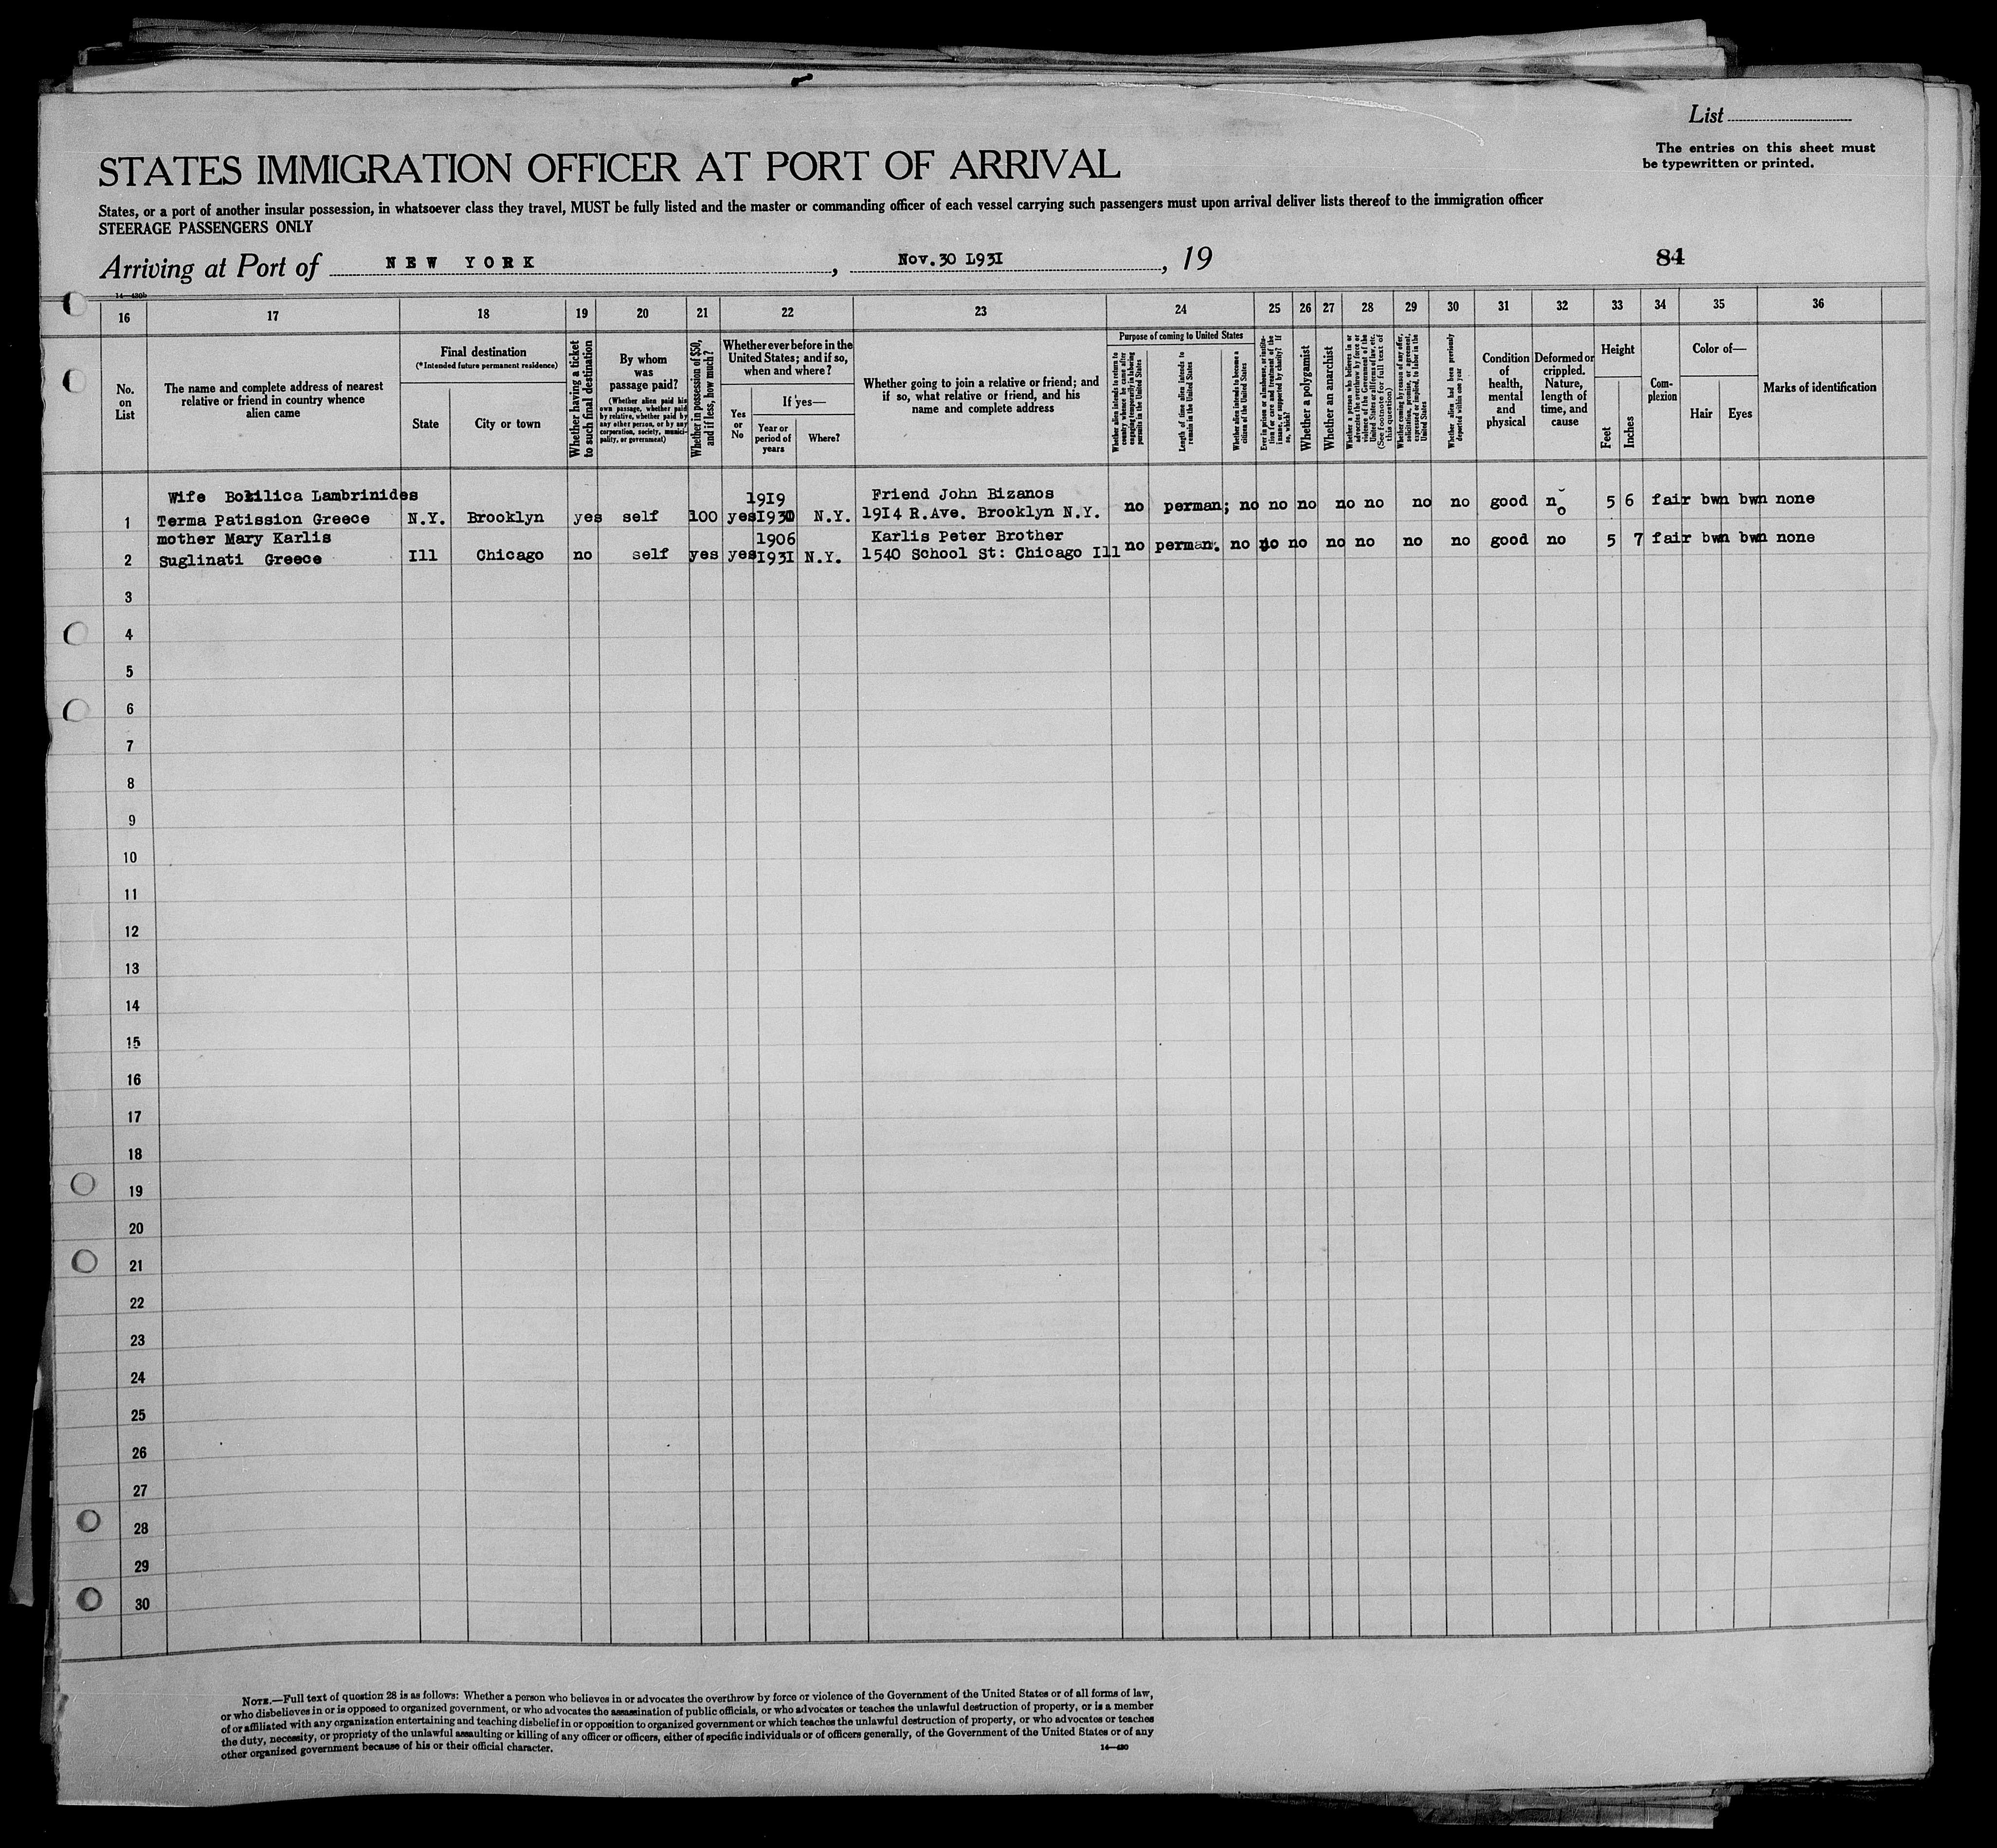 List
The entries on this sheet must
be typewritten or printed.
STATES IMMIGRATION OFFICER AT PORT OF ARRIVAL
States, or a port of another insular possession, in whatsoever class they travel, MUST be fully listed and the master or commanding officer of each vessel carrying such passengers must upon arrival deliver lists thereof to the immigration officer
STEERAGE PASSENGERS ONLY
Arriving at Port of NEW YORK, Nov.30 1931, 19
84
14—430b
16 17 18 19 20 21 22 23 24 25 26 27 28 29 30 31 32 33 34 35 36
No. on List
The name and complete address of nearest relative or friend in country whence alien came
Final destination
(*Intended future permanent residence)
State
City or town
Whether having a ticket to such final destination
By whom was passage paid?
(Whether alien paid his own passage, whether paid by relative, whether paid by any other person, or by any corporation, society, municipality, or government)
Whether in possession of $50, and if less, how much?
Whether ever before in the United States; and if so, when and where?
Yes or No
If yes—
Year or period of years
Where?
Whether going to join a relative or friend; and if so, what relative or friend, and his name and complete address
Purpose of coming to United States
Whether alien intends to return to country whence he came after engaging temporarily in laboring pursuits in the United States
Length of time alien intends to remain in the United States
Whether alien intends to become a citizen of the United States
Ever in prison or almshouse, or institution for care and treatment of the insane, or supported by charity? If so, which?
Whether a polygamist
Whether an anarchist
Whether a person who believes in or advocates the overthrow by force or violence of the Government of the United States or all forms of law, etc. (See footnote for full text of this question)
Whether coming by reason of any offer, solicitation, promise, or agreement, expressed or implied, to labor in the United States
Whether alien had been previously deported within one year
Condition of health, mental and physical
Deformed or crippled. Nature, length of time, and cause
Height
Feet
Inches
Complexion
Color of—
Hair
Eyes
Marks of identification
Wife Lambrinides 1919 Friend John Bizanos
1 Terma Patission Greece N.Y. Brooklyn yes self 100 yes N.Y. 1914 R.Ave. Brooklyn N.Y. no perman; no no no no no no no good no 5 6 fair bwn bwn none
mother Mary Karlis 1906 Karlis Peter Brother
2 Suglinati Greece Ill Chicago no self yes yes 1931 N.Y. 1540 School St: Chicago Ill no perman. no no no no no no no good no 5 7 fair bwn bwn none
3
4
5
6
7
8
9
10
11
12
13
14
15
16
17
18
19
20
21
22
23
24
25
26
27
28
29
30
NOTE.—Full text of question 28 is as follows: Whether a person who believes in or advocates the overthrow by force or violence of the Government of the United States or of all forms of law,
or who disbelieves in or is opposed to organized government, or who advocates the assassination of public officials, or who advocates or teaches the unlawful destruction of property, or is a member
of or affiliated with any organization entertaining and teaching disbelief in or opposition to organized government or which teaches the unlawful destruction of property, or who advocates or teaches
the duty, necessity, or propriety of the unlawful assaulting or killing of any officer or officers, either of specific individuals or of officers generally, of the Government of the United States or of any
other organized government because of his or their official character.
14—430